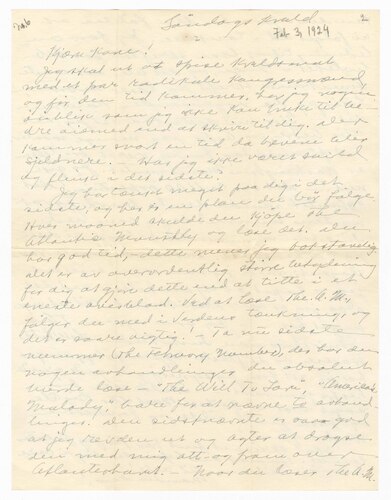 No 6
2
Söndags Kveld
Feb 3, 1924
Kjære Kone!
Jeg skal ut at spise Kveldsmat
med et par radikale kongressmænd
og før den tid kommer, har jeg nogen
øieblik som jeg ikke kan bruke til be-
dre end at skrive til dig. Der
kommer snart en tid da brevene blir
sjeldnere. — Har jeg ikke været snild
og flink i det sidste?
Jeg har tænkt meget paa dig i det
sidste, og har en plan du bør følge.
Hver maaned skulde du kjøpe The
Atlantic Monthly og læse det. Du
har god tid, — dette mener jeg
det er av overordentlig større betydning
for dig at gjøre dette end at titte i et
eneste avisblad. Ved at læse The A. M.,
følger du med i verdens tænkning, og
det er saare vigtig! — Ta nu sidste
nummer (The February Number), der har du
nogen avhandlinger du absolut
burde læse — "The Will To Joy", "American
Malady," bare for at nævne to avhand
linger. Den sidstnævnte er saa god
at jeg rev den ut og agter at
den med mig att og fram over
Atlanterhavet. — Naar du læser The A. M.